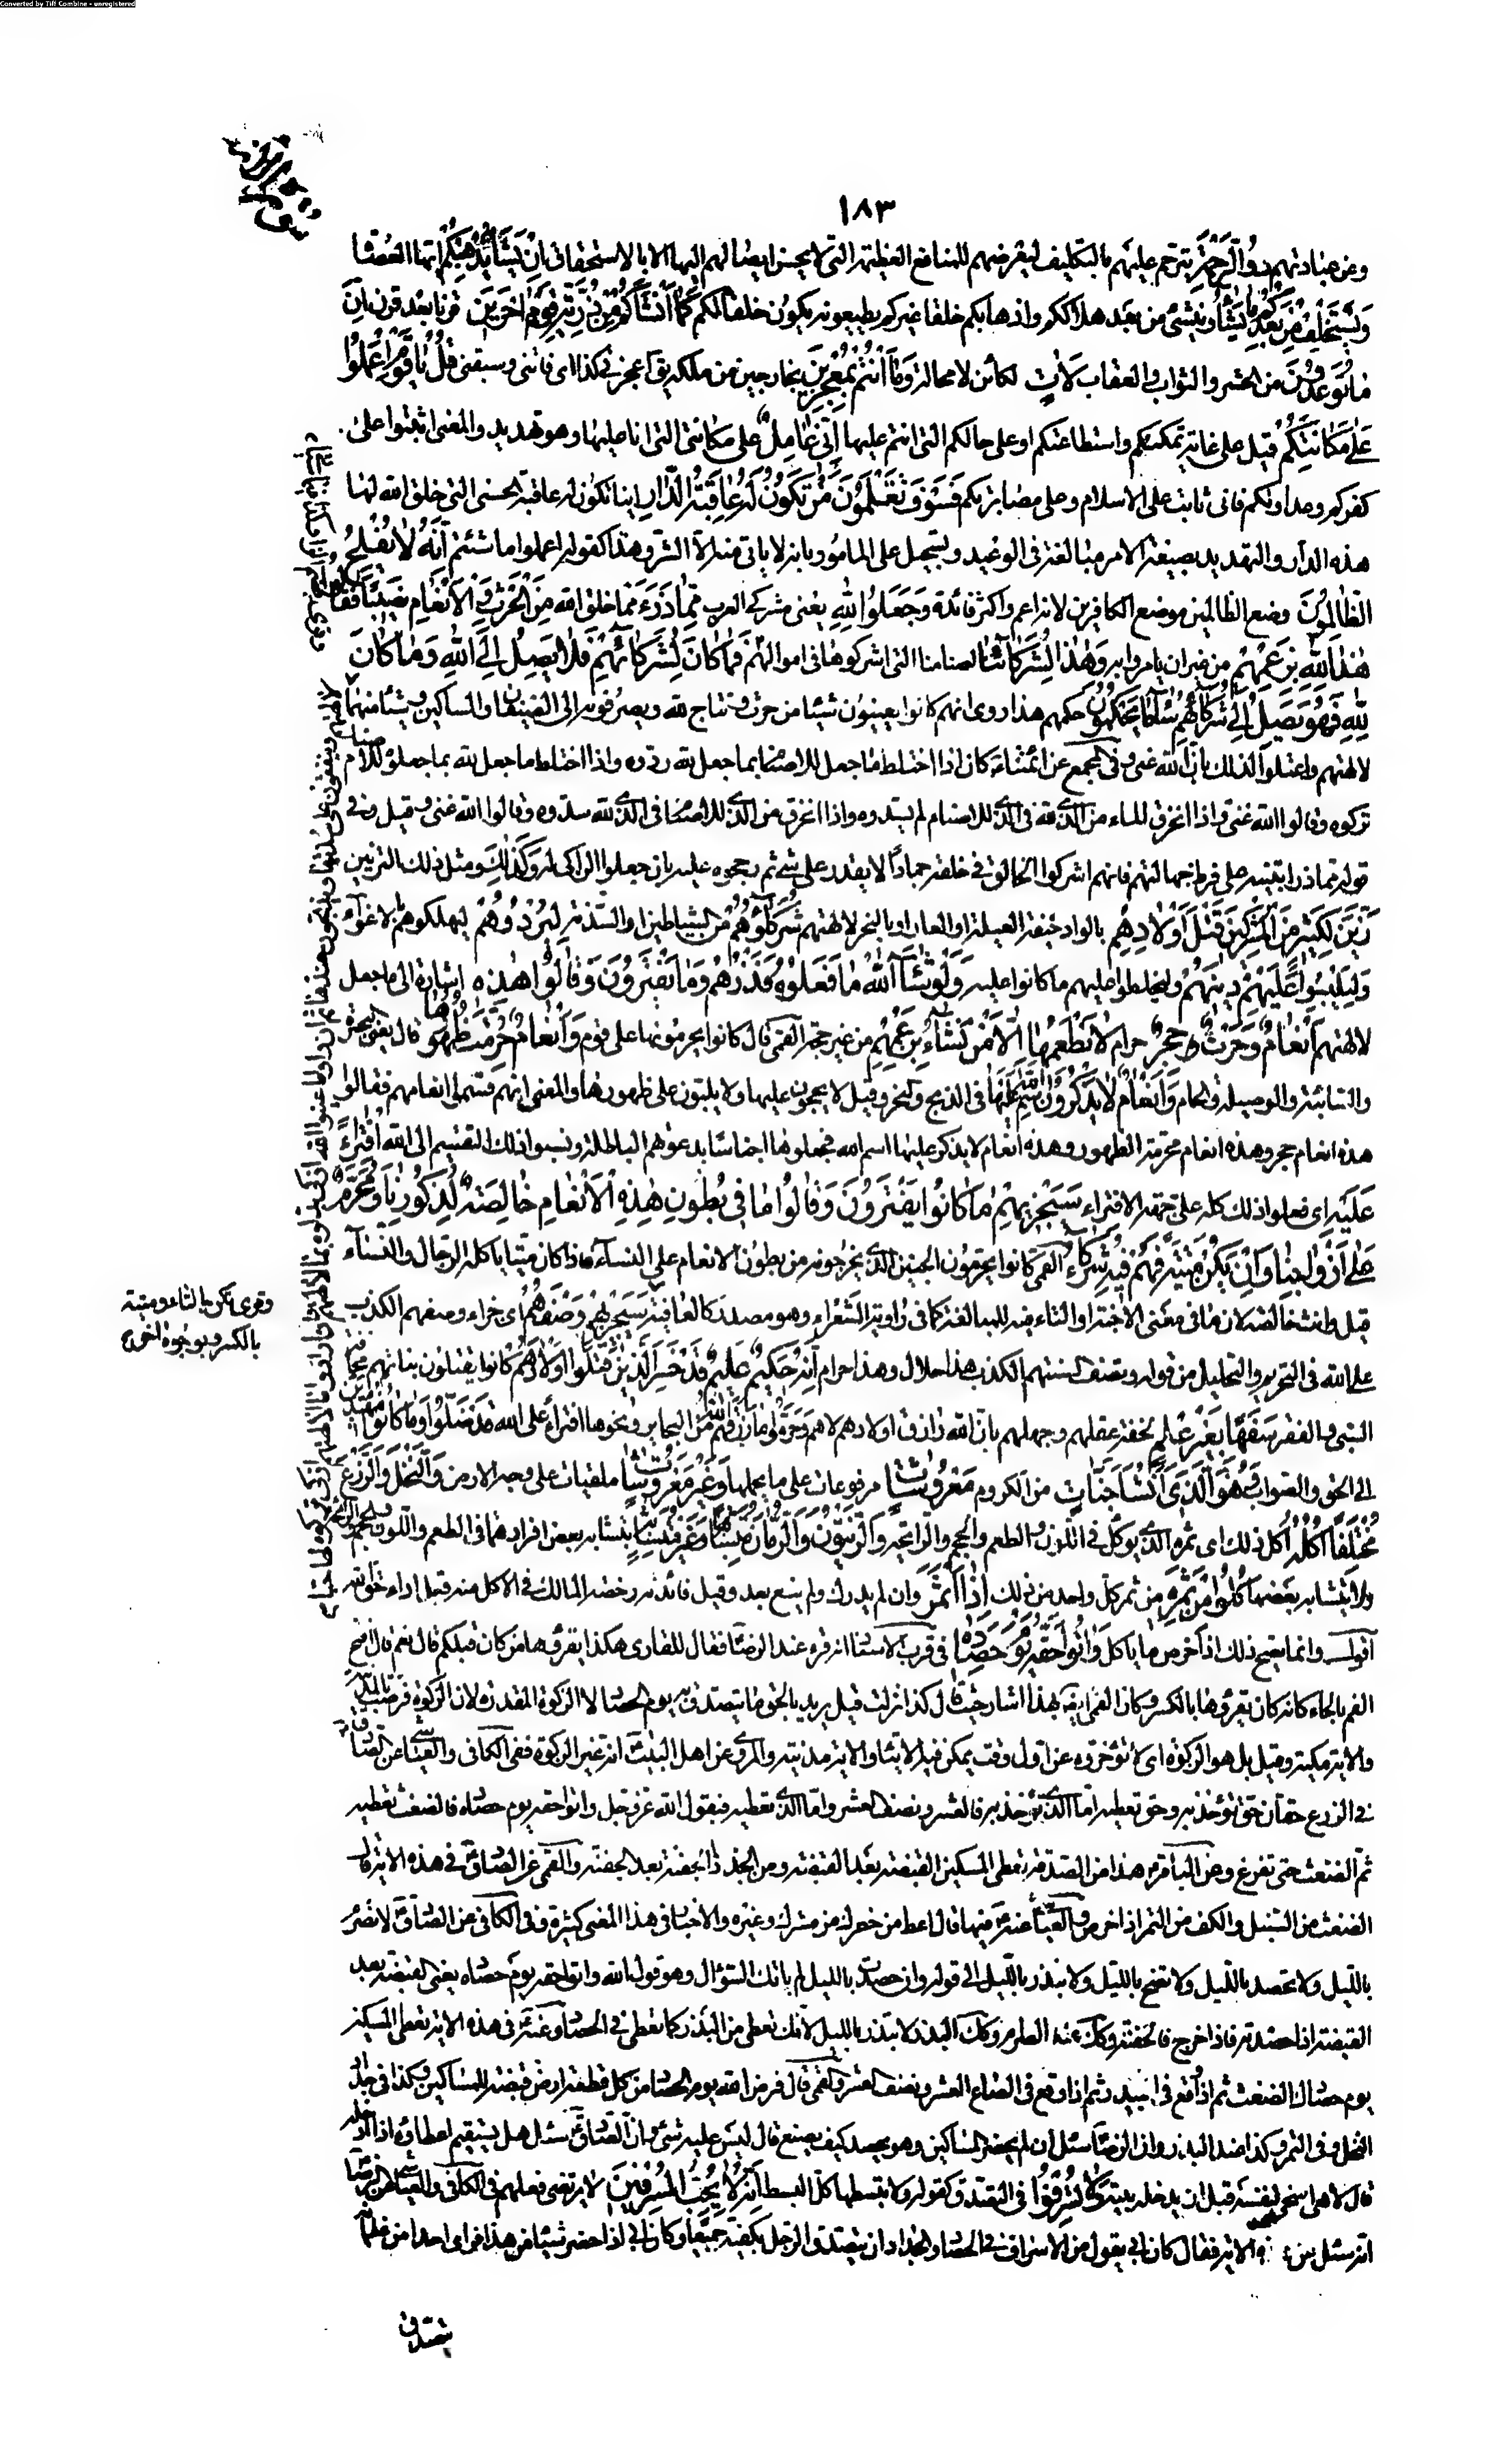 Converted by Tiff Combine - unregistered
١٨٣
وعن عبادتهم ذُو الرَّحْمَةِ يترحم عليهم بالتكليف ليعرضهم للمنافع العظيمة التي لا يحسن ايصالهم اليها الا بالاستحقاق اِنْ يَشَأْ يُذْهِبْكُمْ ايها العصاة
وَيَسْتَخْلِفْ مِنْ بَعْدِكُمْ مَا يَشَاءُ وينشئ من بعد هلاككم واذهابكم خلقا غيركم يطيعونه يكونون خلفا لكم كَمَا أَنْشَأَكُمْ مِنْ ذُرِّيَّةِ قَوْمٍ آخَرِينَ قرنا بعد قرن إِنَّ
مَا تُوعَدُونَ من الحشر والثواب والعقاب لَآتٍ لكائن لا محالة وَمَا أَنْتُمْ بِمُعْجِزِينَ بخارجين من ملكه يق اعجزني كذا اى فاتني وسبقني قُلْ يَا قَوْمِ اعْمَلُوا
عَلَى مَكَانَتِكُمْ قيل على غاية تمكنكم واستطاعتكم او على حالكم التي انتم عليها إِنِّي عَامِلٌ على مكانتي التي انا عليها وهو تهديد والمعنى اثبتوا على
كفركم وعداوتكم فاني ثابت على الاسلام وعلى مصابرتكم فَسَوْفَ تَعْلَمُونَ مَنْ تَكُونُ لَهُ عَاقِبَةُ الدَّارِ اينا تكون له عاقبة الحسنى التي خلق الله لها
هذه الدار والتهديد بصيغة الامر مبالغة في الوعيد وتسجيل على المامور بانه لا ياتي منه الا الشر وهذا كقوله اعملوا ما شئتم إِنَّهُ لَا يُفْلِحُ
الظَّالِمُونَ وضع الظالمين موضع الكافرين لانه اعم واكثر فائدة وَجَعَلُوا لِلَّهِ يعني مشركي العرب مِمَّا ذَرَأَ مما خلق الله مِنَ الْحَرْثِ وَالْأَنْعَامِ نَصِيبًا فَقَالُوا
هَذَا لِلَّهِ بِزَعْمِهِمْ من غير ان يامروا به وَهَذَا لِشُرَكَائِنَا اصنامنا التي اشركوها في اموالهم فَمَا كَانَ لِشُرَكَائِهِمْ فَلَا يَصِلُ إِلَى اللَّهِ وَمَا كَانَ
لِلَّهِ فَهُوَ يَصِلُ إِلَى شُرَكَائِهِمْ سَاءَ مَا يَحْكُمُونَ حكمهم هذا روى انهم كانوا يعينون شيئا من حرث ونتاج لله ويصرفونه الى الضيفان والمساكين وشيئا منهما
لالهتهم واعتلوا لذلك بان الله غنى وفي المجمع عن ائمتنا ع كان اذا اختلط ما جعل للاصنام بما جعل لله ردوه واذا اختلط ما جعل لله بما جعلوه للاصنام
تركوه وقالوا الله غنى واذا انخرق الماء من الذي لله في الذي للاصنام لم يسدوه واذا انخرق من الذي للاصنام في الذي لله سدوه وقالوا الله غنى وقيل وفي
قوله مما ذرا تنبيه على فرط جهالتهم فانهم اشركوا الخالق في خلقه جمادا لا يقدر على شيء ثم رجحوه عليه بان جعلوا الزاكى له وَكَذَلِكَ ومثل ذلك التزيين
زَيَّنَ لِكَثِيرٍ مِنَ الْمُشْرِكِينَ قَتْلَ أَوْلَادِهِمْ بالواد خيفة العيلة او العار او بالنحر لالهتهم شُرَكَاؤُهُمْ من الشياطين او السدنة لِيُرْدُوهُمْ ليهلكوهم بالاغواء
وَلِيَلْبِسُوا عَلَيْهِمْ دِينَهُمْ وليخلطوا عليهم ما كانوا عليه وَلَوْ شَاءَ اللَّهُ مَا فَعَلُوهُ فَذَرْهُمْ وَمَا يَفْتَرُونَ وَقَالُوا هَذِهِ اشارة الى ما جعل
لالهتهم أَنْعَامٌ وَحَرْثٌ حِجْرٌ حرام لَا يَطْعَمُهَا إِلَّا مَنْ نَشَاءُ بِزَعْمِهِمْ من غير حجة القمي قال كانوا يحرمونها على قوم وَأَنْعَامٌ حُرِّمَتْ ظُهُورُهَا قال يعني البحيرة
والسائبة والوصيلة والحام وَأَنْعَامٌ لَا يَذْكُرُونَ اسْمَ اللَّهِ عَلَيْهَا في الذبح والنحر وقيل لا يحجون عليها ولا يلبون على ظهورها والمعنى انهم قسموا انعامهم فقالوا
هذه انعام حجر وهذه انعام محرمة الظهور وهذه انعام لا يذكر عليها اسم الله فجعلوها اجناسا بدعوٰهم الباطلة ونسبوا ذلك التقسيم الى الله افْتِرَاءً
عَلَيْهِ اى فعلوا ذلك كله على جهة الافتراء سَيَجْزِيهِمْ بِمَا كَانُوا يَفْتَرُونَ وَقَالُوا مَا فِي بُطُونِ هَذِهِ الْأَنْعَامِ خَالِصَةٌ لِذُكُورِنَا وَمُحَرَّمٌ
عَلَى أَزْوَاجِنَا وَإِنْ يَكُنْ مَيْتَةً فَهُمْ فِيهِ شُرَكَاءُ القمي كانوا يحرمون الجنين الذي يخرجونه من بطون الانعام على النساء فاذا كان ميتا ياكله الرجال والنساء
قيل وانث خالصة لان ما في معنى الاجنة او التاء فيه للمبالغة كما في راوية الشعر او هو مصدر كالعافية سَيَجْزِيهِمْ وَصْفَهُمْ اى جزاء وصفهم الكذب
على الله في التحريم والتحليل من قوله وتصف السنتهم الكذب هذا حلال وهذا حرام إِنَّهُ حَكِيمٌ عَلِيمٌ قَدْ خَسِرَ الَّذِينَ قَتَلُوا أَوْلَادَهُمْ كانوا يقتلون بناتهم مخافة
السبي والفقر سَفَهًا بِغَيْرِ عِلْمٍ لخفة عقلهم وجهلهم بان الله رازق اولادهم لا هم وَحَرَّمُوا مَا رَزَقَهُمُ اللَّهُ من البحاير ونحوها افتراء على الله قَدْ ضَلُّوا وَمَا كَانُوا مُهْتَدِينَ
الى الحق والصواب وَهُوَ الَّذِي أَنْشَأَ جَنَّاتٍ من الكروم مَعْرُوشَاتٍ مرفوعات على ما يحملها وَغَيْرَ مَعْرُوشَاتٍ ملقيات على وجه الارض وَالنَّخْلَ وَالزَّرْعَ
مُخْتَلِفًا أُكُلُهُ اكل ذلك اى ثمره الذي يوكل في اللون والطعم والحجم والرائحة وَالزَّيْتُونَ وَالرُّمَّانَ مُتَشَابِهًا وَغَيْرَ مُتَشَابِهٍ يتشابه بعض افرادهما في الطعم واللون والحجم
ولا يتشابه بعضها كُلُوا مِنْ ثَمَرِهِ من ثمر كل واحد من ذلك إِذَا أَثْمَرَ وان لم يدرك ولم ينع بعد وقيل فائدته رخصة المالك في الاكل منه قبل اداء حق الله
اقول وانما يصح ذلك اذا خرص ما ياكل وَآتُوا حَقَّهُ يَوْمَ حَصَادِهِ في قرب الاسناد انه قرء عند الرضا فقال للقارى هكذا يقرؤها من كان قبلكم قال نعم قال افتح
الفم بالحاء كانه كان يقرؤها بالكسر
والاية مكية وقيل بل هو الزكوة اى لا تؤخروه عن اول وقت يمكن فيه الايتاء والاية مدنية والمروى عن اهل البيت انه غير الزكوة ففي الكافي والعياشي عن الصادق
في الزرع حقان حق تؤخذ به وحق تعطيه اما الذي تؤخذ به فالعشر ونصف العشر واما الذي تعطيه فيقول الله عز وجل واتوا حقه يوم حصاده فالضغث تعطيه
ثم الضغث حتى تفرغ وعن الباقر هذا من الصدقة تعطى المسكين القبضة بعد القبضة ومن الجذاذ الحفنة بعد الحفنة والقمي عن الصادق في هذه الاية قال
الضغث من السنبل والكف من التمر اذا خرص والعياشي عنه فيها قال اعط من حضرك من مشرك وغيره والاخبار في هذا المعنى كثيرة وفي الكافي عن الصادق لا تصرم
بالليل ولا تحصد بالليل ولا تضح بالليل ولا تبذر بالليل الى قوله وان حصدت بالليل لم ياتك السؤال وهو قول الله واتوا حقه يوم حصاده يعني القبضة بعد
القبضة اذا حصدته فاذا خرج فالحفنة وكذلك عند الصرام وكذلك البذر لا تبذر بالليل لانك تعطي من البذر كما تعطي في الحصاد وعنه في هذه الاية تعطي المسكين
يوم حصادك الضغث ثم اذا وقع في البيدر ثم اذا وقع في الصاع العشر ونصف العشر والقمي قال فرض الله يوم الحصاد من كل قطعة ارض قبضة للمساكين وكذا في جذاذ
النخل وفي التمر وكذا عند البذر وان الرضا سئل ان لم يحضر المساكين وهو يحصد كيف يصنع قال ليس عليه شيء وان الصادق سئل هل يستقيم اعطاؤه اذا ادخله
قال لا هو اسخى لنفسه قبل ان يدخله بيته وَلَا تُسْرِفُوا في التصدق كقوله ولا تبسطها كل البسط إِنَّهُ لَا يُحِبُّ الْمُسْرِفِينَ لا يرتضى فعلهم في الكافي والعياشي عن الرضا
انه سئل عن الاية فقال كان ابي يقول من الاسراف في الحصاد والجذاذ ان يتصدق الرجل بكفيه جميعا وكان ابي اذا حضر شيئا من هذا فراى احدا من غلمانه
يتصدق
وقرى تكن بالتاء وميتة
بالكسر وبوجوه اخرى